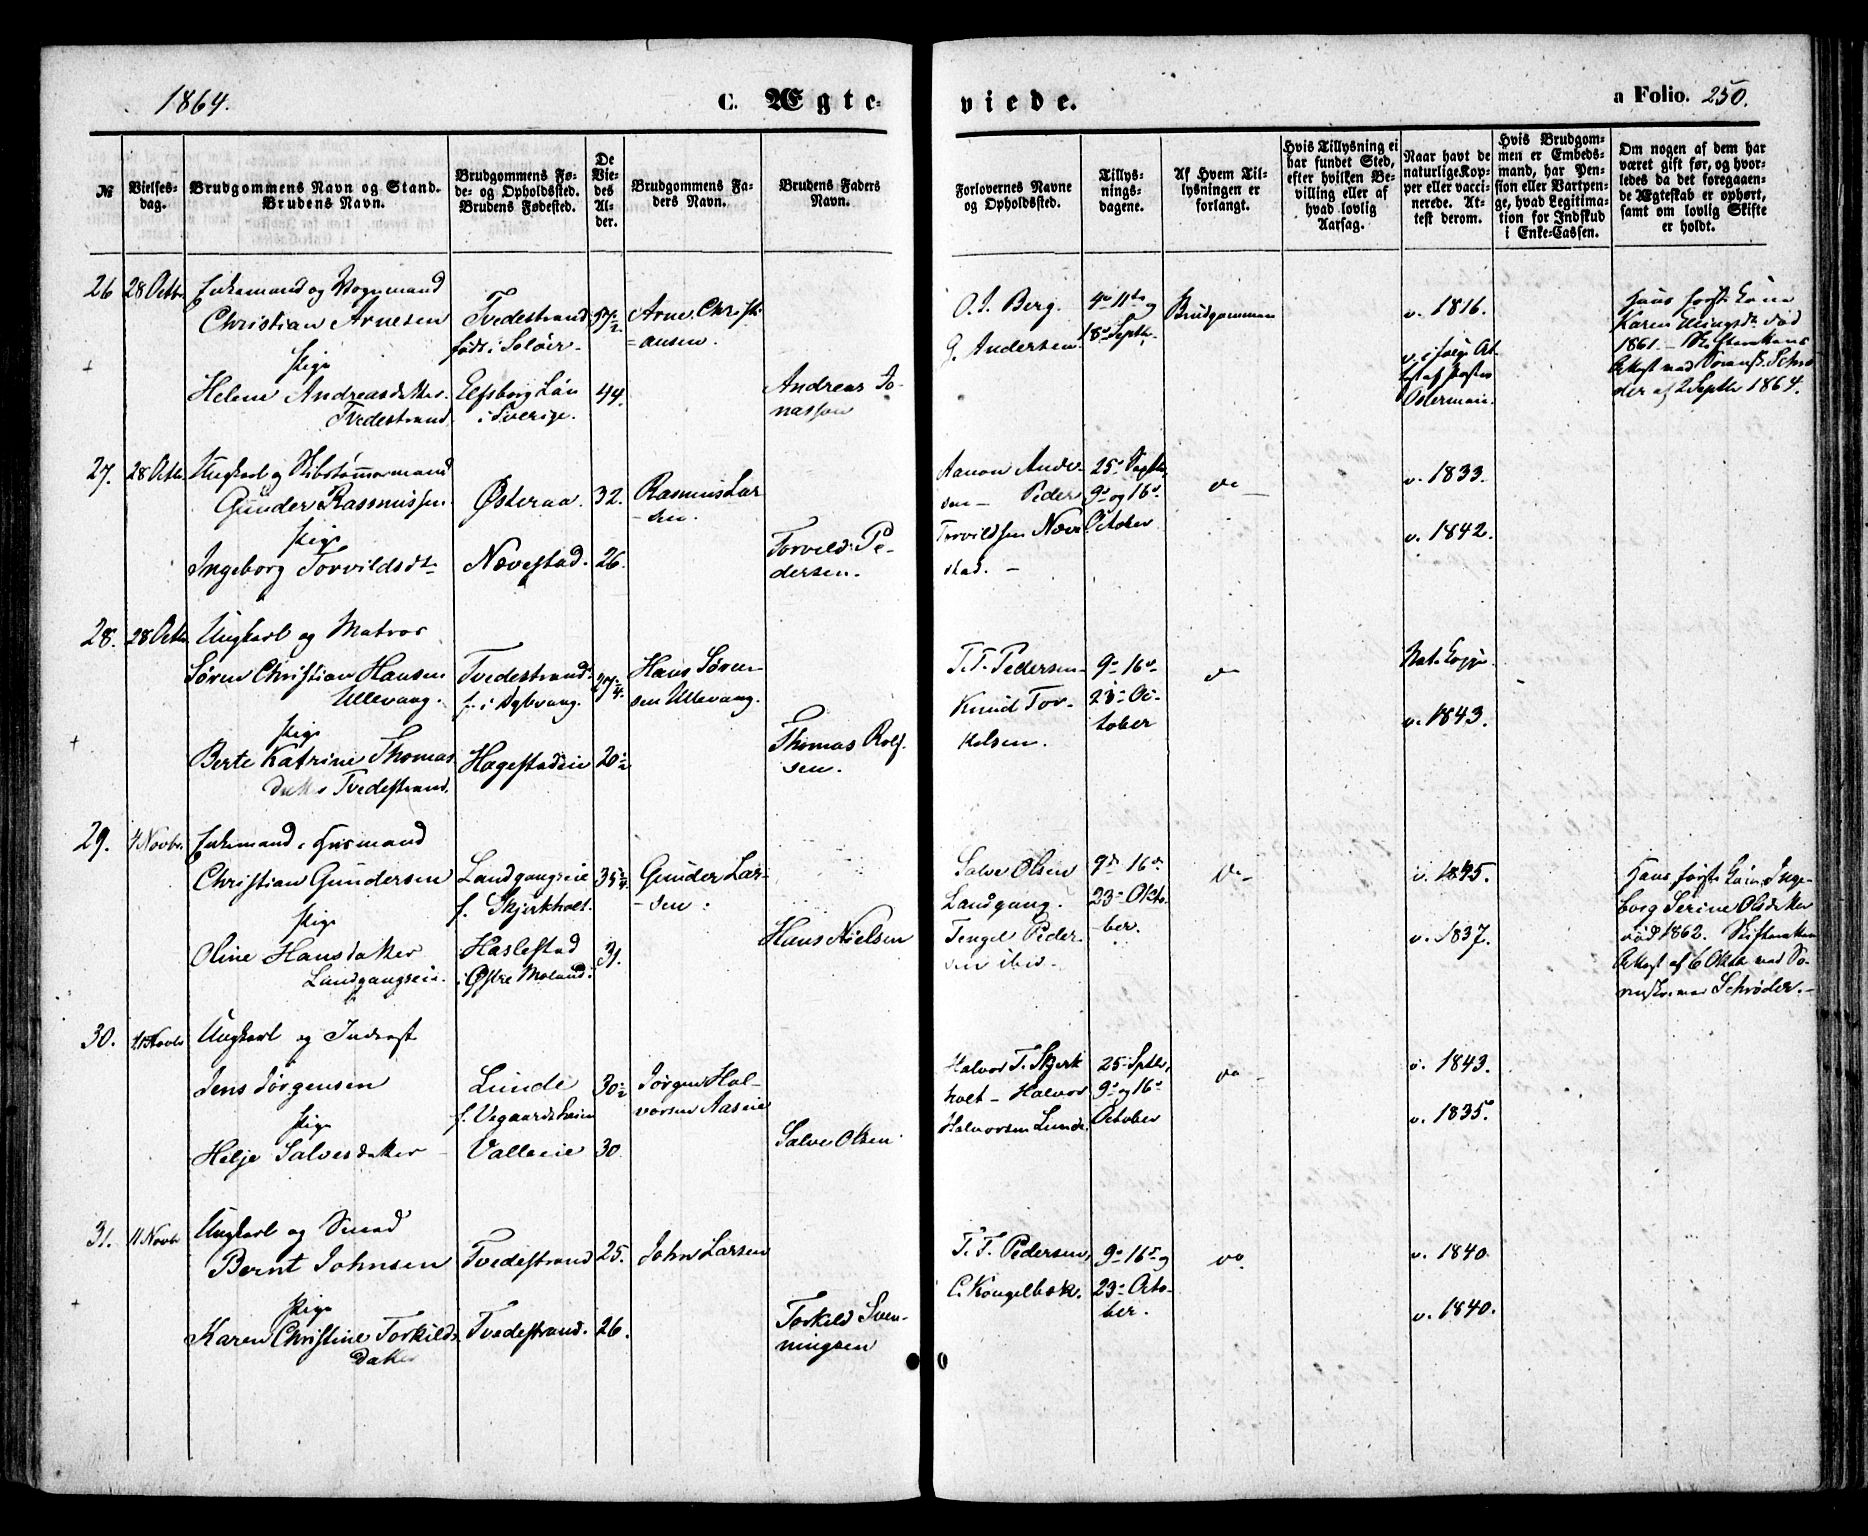 1864.
C. Ægte-
viede.
a Folio. 250.
№
Vielses-
dag.
Brudgommens Navn og Stand.
Brudens Navn.
Brudgommens Fø-
de- og Opholdssted.
Brudens Fødested.
De
Vie-
des
Al-
der.
Brudgommens Fa-
ders Navn.
Brudens Faders
Navn.
Forlovernes Navne
og Opholdssted.
Tillys-
nings-
dagene.
Af Hvem Til-
lysningen er
forlangt.
Hvis Tillysning ei
har fundet Sted,
efter hvilken Be-
villing eller af
hvad lovlig
Aarsag.
Naar havt de
naturlige Kop-
per eller vacci-
nerede. At-
test derom.
Hvis Brudgom-
men er Embeds-
mand, har Pen-
sion eller Vartpen-
ge, hvad Legitima-
tion for Indskud
i Enke-Cassen.
Om nogen af dem har
været gift før, og hvor-
ledes da det foregaaen-
de Ægteskab er ophørt,
samt om lovlig Skifte
er holdt.
26 28 Octbr
Enkemand og Vognmand
Christian Arnesen
Pige
Helene Andreasdatter
Tvedestrand
Tvedestrand
født i Soløer
Elfsborg Län
i Sverige.
57½
44.
Arne Christi-
ansen.
Andreas Jo-
nassen
O. J. Berg.
G. Andersen
4de 11te og
18de Septbr
Brudgommen
v. 1816.
v. i følge At-
test af Pastor
Osterman.
Hans første Kone
Karen død
1861. - Skifterettens
Attest ved Schrø-
der af 2 Septbr 1864.
27. 28 Octbr
Ungkarl og Skibstømmermand
Gunder Rasmussen
Pige
Ingeborg Torvildsdtr
Østeraa.
Nævestad.
32.
26.
Rasmus Lar-
sen.
Torvild Pe-
dersen.
Aanon Ander-
sen - Peder
Torvildsen Næve
stad. -
25de Septbr,
9de og 16de
October
do
v. 1833.
v. 1842.
28. 28 Octbr
Ungkarl og Matros
Søren Christian Hansen
Ullevang.
Pige
Berte Katrine Thomas
datter Tvedestrand.
Tvedestrand
f. i Dybvaag.
Hagestadeie
27¼.
20½
Hans Søren-
sen Ullevang.
Thomas Rolf-
sen.
T. T. Pedersen
Knud Tor-
kelsen.
9de 16de
23de Oc-
tober
do
Nat. Kopper
v. 1843.
29. 4 Novbr.
Enkemand, Husmand
Christian Gundersen
Pige
Oline Hansdatter
Landgangseie.
Landgangseie
f. Skjerkholt.
Haslestad
i Østre Moland.
35¾
31.
Gunder Lar-
sen.
Hans Nielsen
Salve Olsen
Landgang.
Tengel Peder-
sen ibid.
9de 16de
23de Octo-
ber.
do
v. 1845.
v. 1837.
Hans første Kone Inge-
borg Serine Olsdatter
død 1862. Skifterettens
Attest af 6 Oktbr ved So-
renskriver Schrøder. -
30.
Ungkarl og Inderst
Jens Jørgensen
Pige
Helje Salvesdatter
Lunde
f. Vegaardsheien
Valleeie
30½
30.
Jørgen Hal-
vorsen Aaseie
Salve Olsen
Halvor T. Skjerk
holt - Halvor
Halvorsen Lunde.
25de Septbr,
9de og 16de
October
do
v. 1843.
v. 1835.
31. 11 Novbr
Ungkarl og Smed
Bernt Johnsen
Pige
Karen Christine Torkilds
datter
Tvedestrand
Tvedestrand.
25.
26.
John Larsen
Torkild Sven-
ningsen
T. T. Pedersen,
C. Kongelbek.
9de 16de og
23de Octo-
ber.
do
v. 1840.
v. 1840.